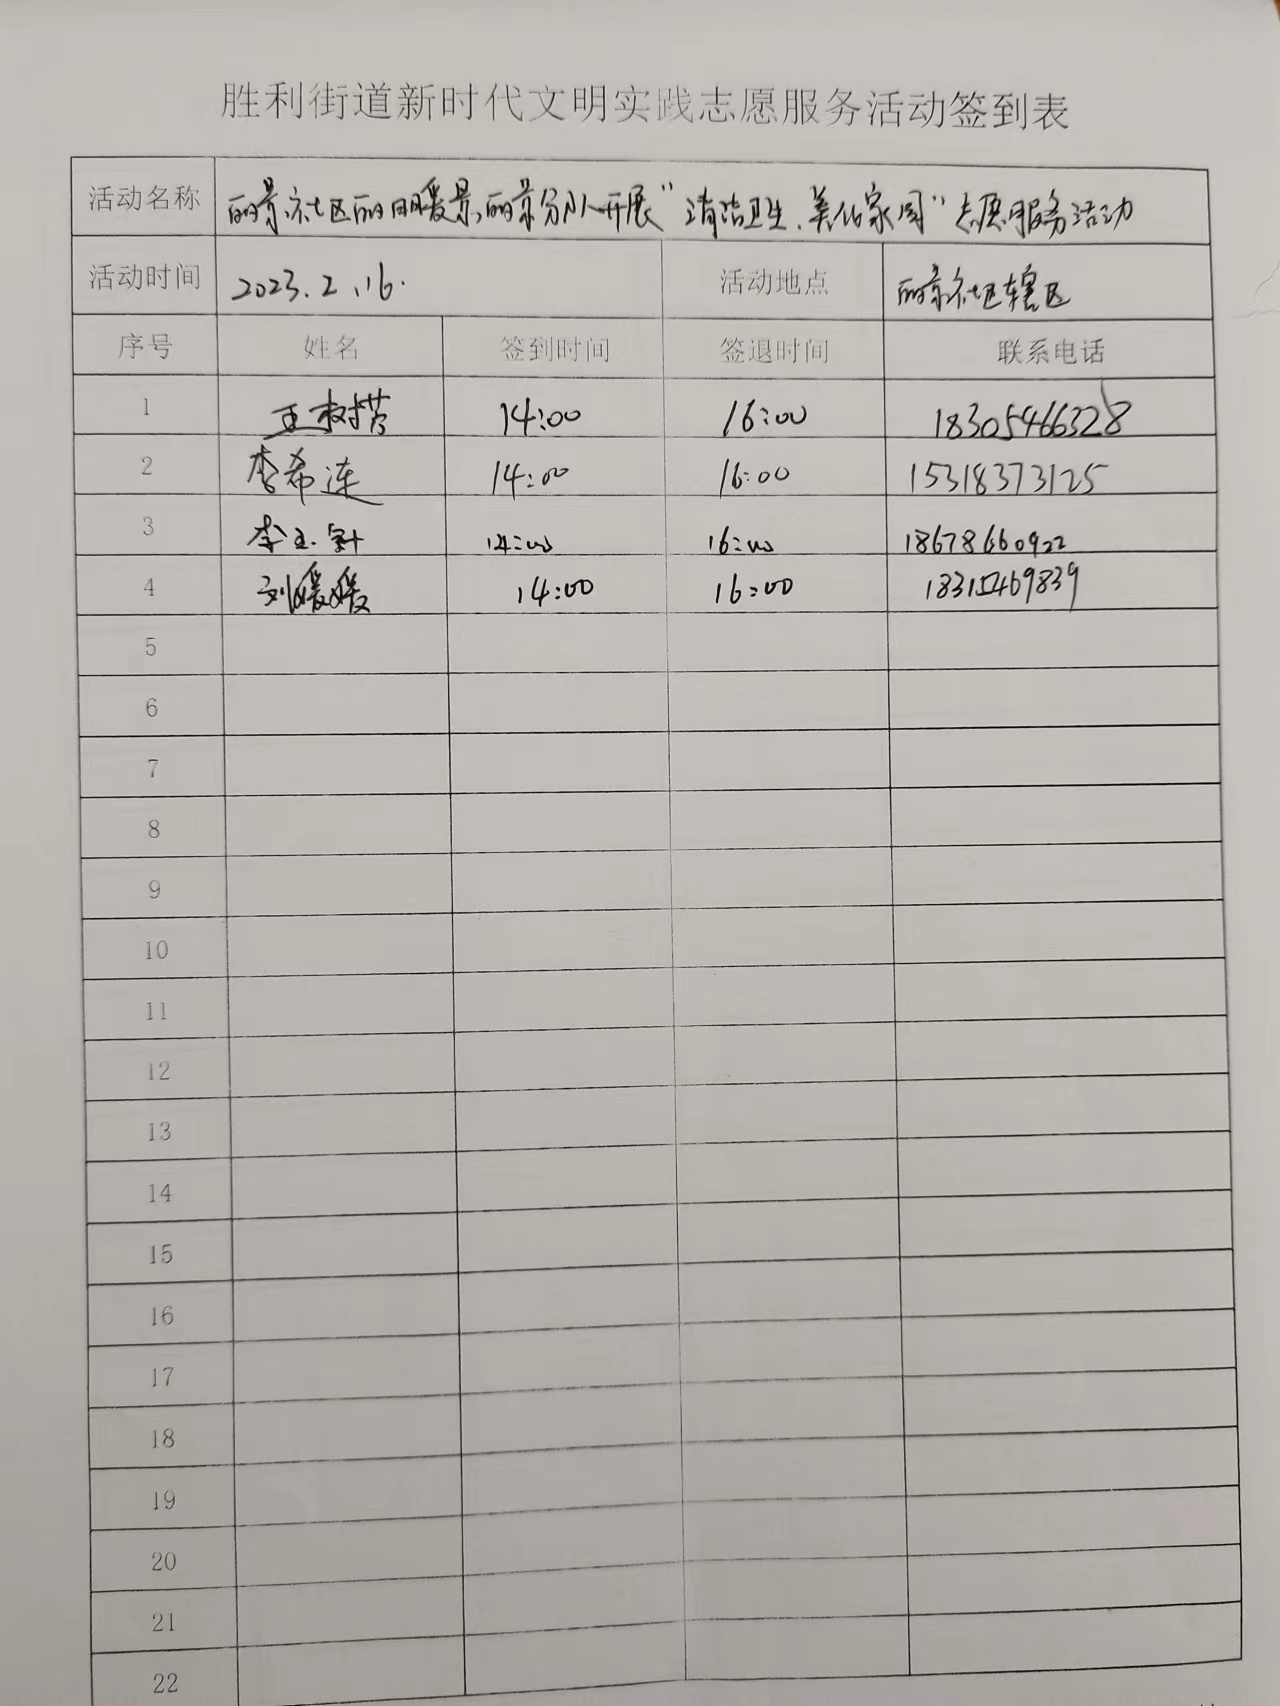 胜利街道新时代文明实践志愿服务活动签到表
活动名称 丽景社区丽暖景丽景分队开展“清洁卫生、美化家园”志愿服务活动
活动时间 2023.2.16. 活动地点 丽景社区辖区
序号 姓名 签到时间 签退时间 联系电话
1 14:00 16:00 18305466328
2 李希连 14:00 16:00 15318373125
3 14:00 16:00 18678660922
4 刘媛媛 14:00 16:00 18315469839
5
6
7
8
9
10
11
12
13
14
15
16
17
18
19
20
21
22